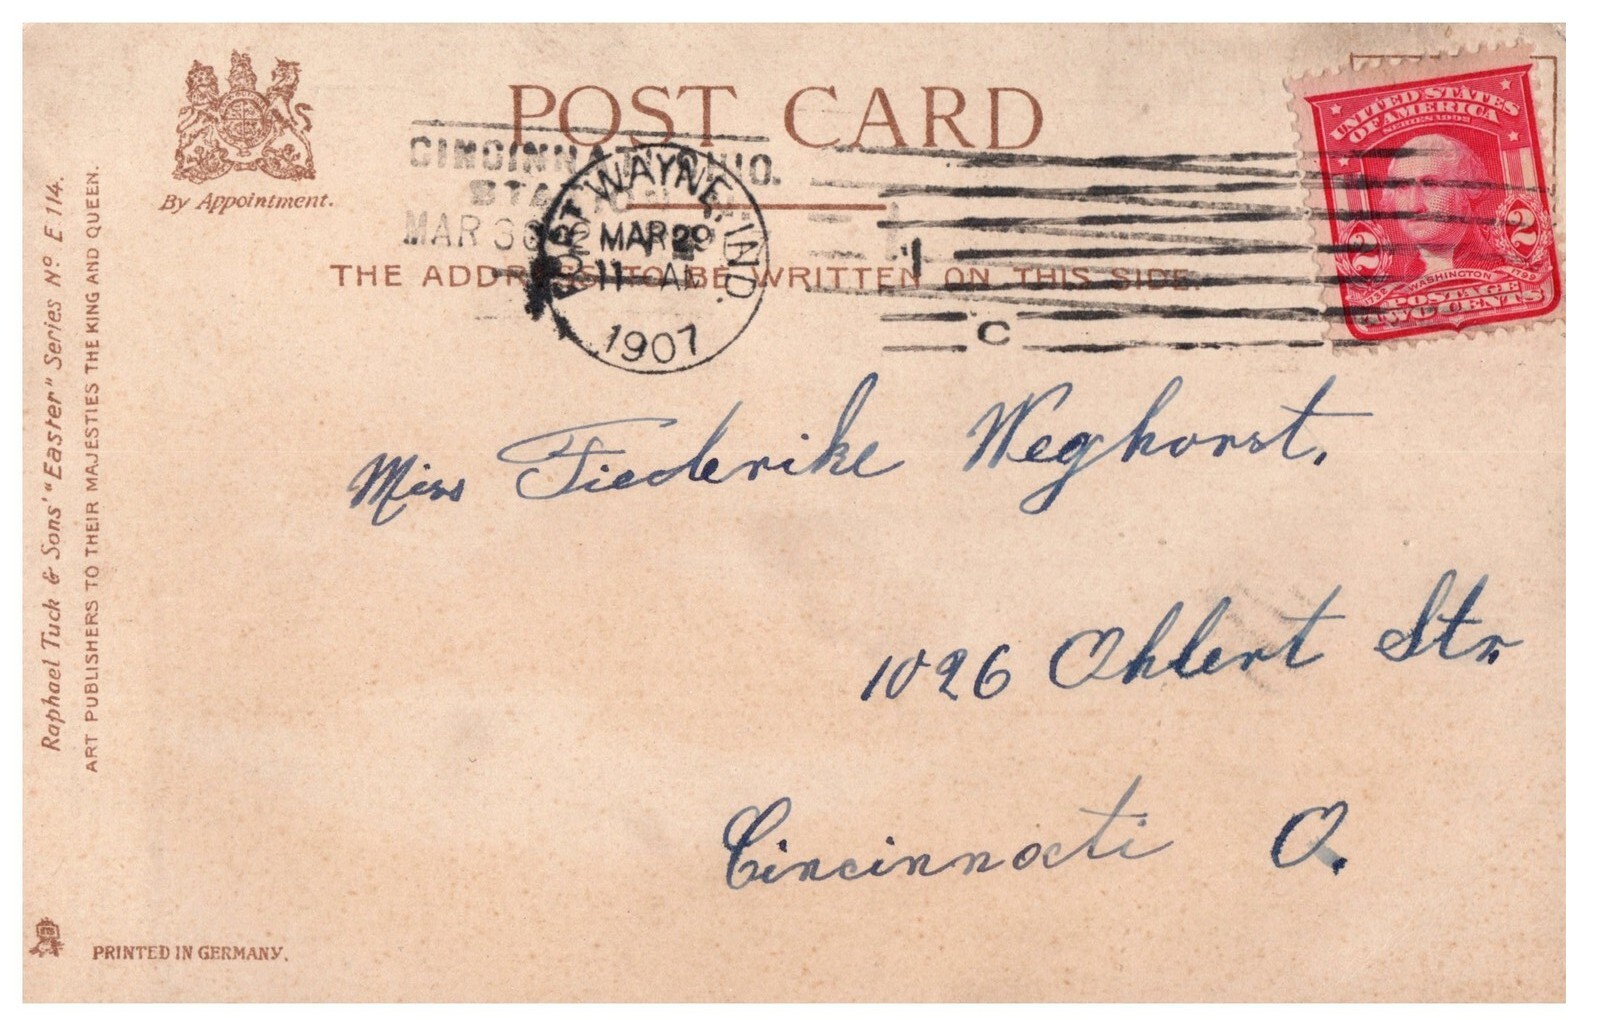 POST CARD
By Appointment.
CINCINNATI, OHIO.
MAR 30
FORT WAYNE, IND.
MAR 29
11 AM
1907
1
C
THE ADDRESS TO BE WRITTEN ON THIS SIDE.
UNITED STATES
OF AMERICA
SERIES 1902
2 2
WASHINGTON
1732 1799
POSTAGE
TWO CENTS
Raphael Tuck & Sons' "Easter" Series Nº E 114.
ART PUBLISHERS TO THEIR MAJESTIES THE KING AND QUEEN.
Miss Fiederike Weghorst.
1026 Ohlert Str.
Cincinnati O.
PRINTED IN GERMANY.